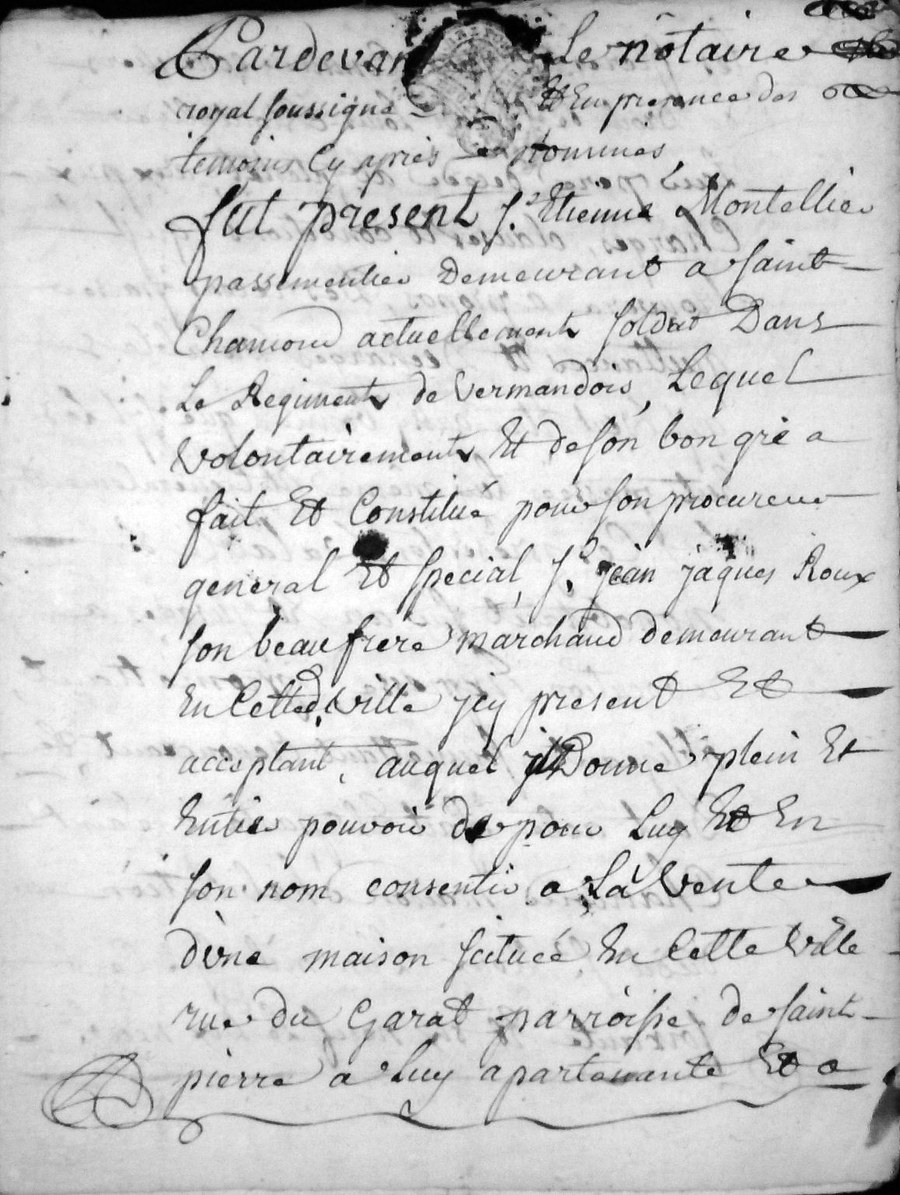 Pardevant Le nôtaire
royal soussigné Et En presence des
temoins Cy après nommés,
fut present S.r Etienne Montellier
passementier Demeurant a saint
Chamond actuellement soldat Dans
Le Regiment de Vermandois, Lequel
volontairement Et de son bon gré a
fait Et Constitué pour son procureur
general Et special, S.r jean jaques Roux
son beaufrere marchand demeurant
En Cette d. ville jcy present Et
acceptant, auquel jl Donne plein Et
Entier pouvoir de pour Luy Et En
son nom consentir a La vente
dùne maison scituée En Cette ville
rue du Garat parroisse de saint
pierre a Luy apartenante Et a